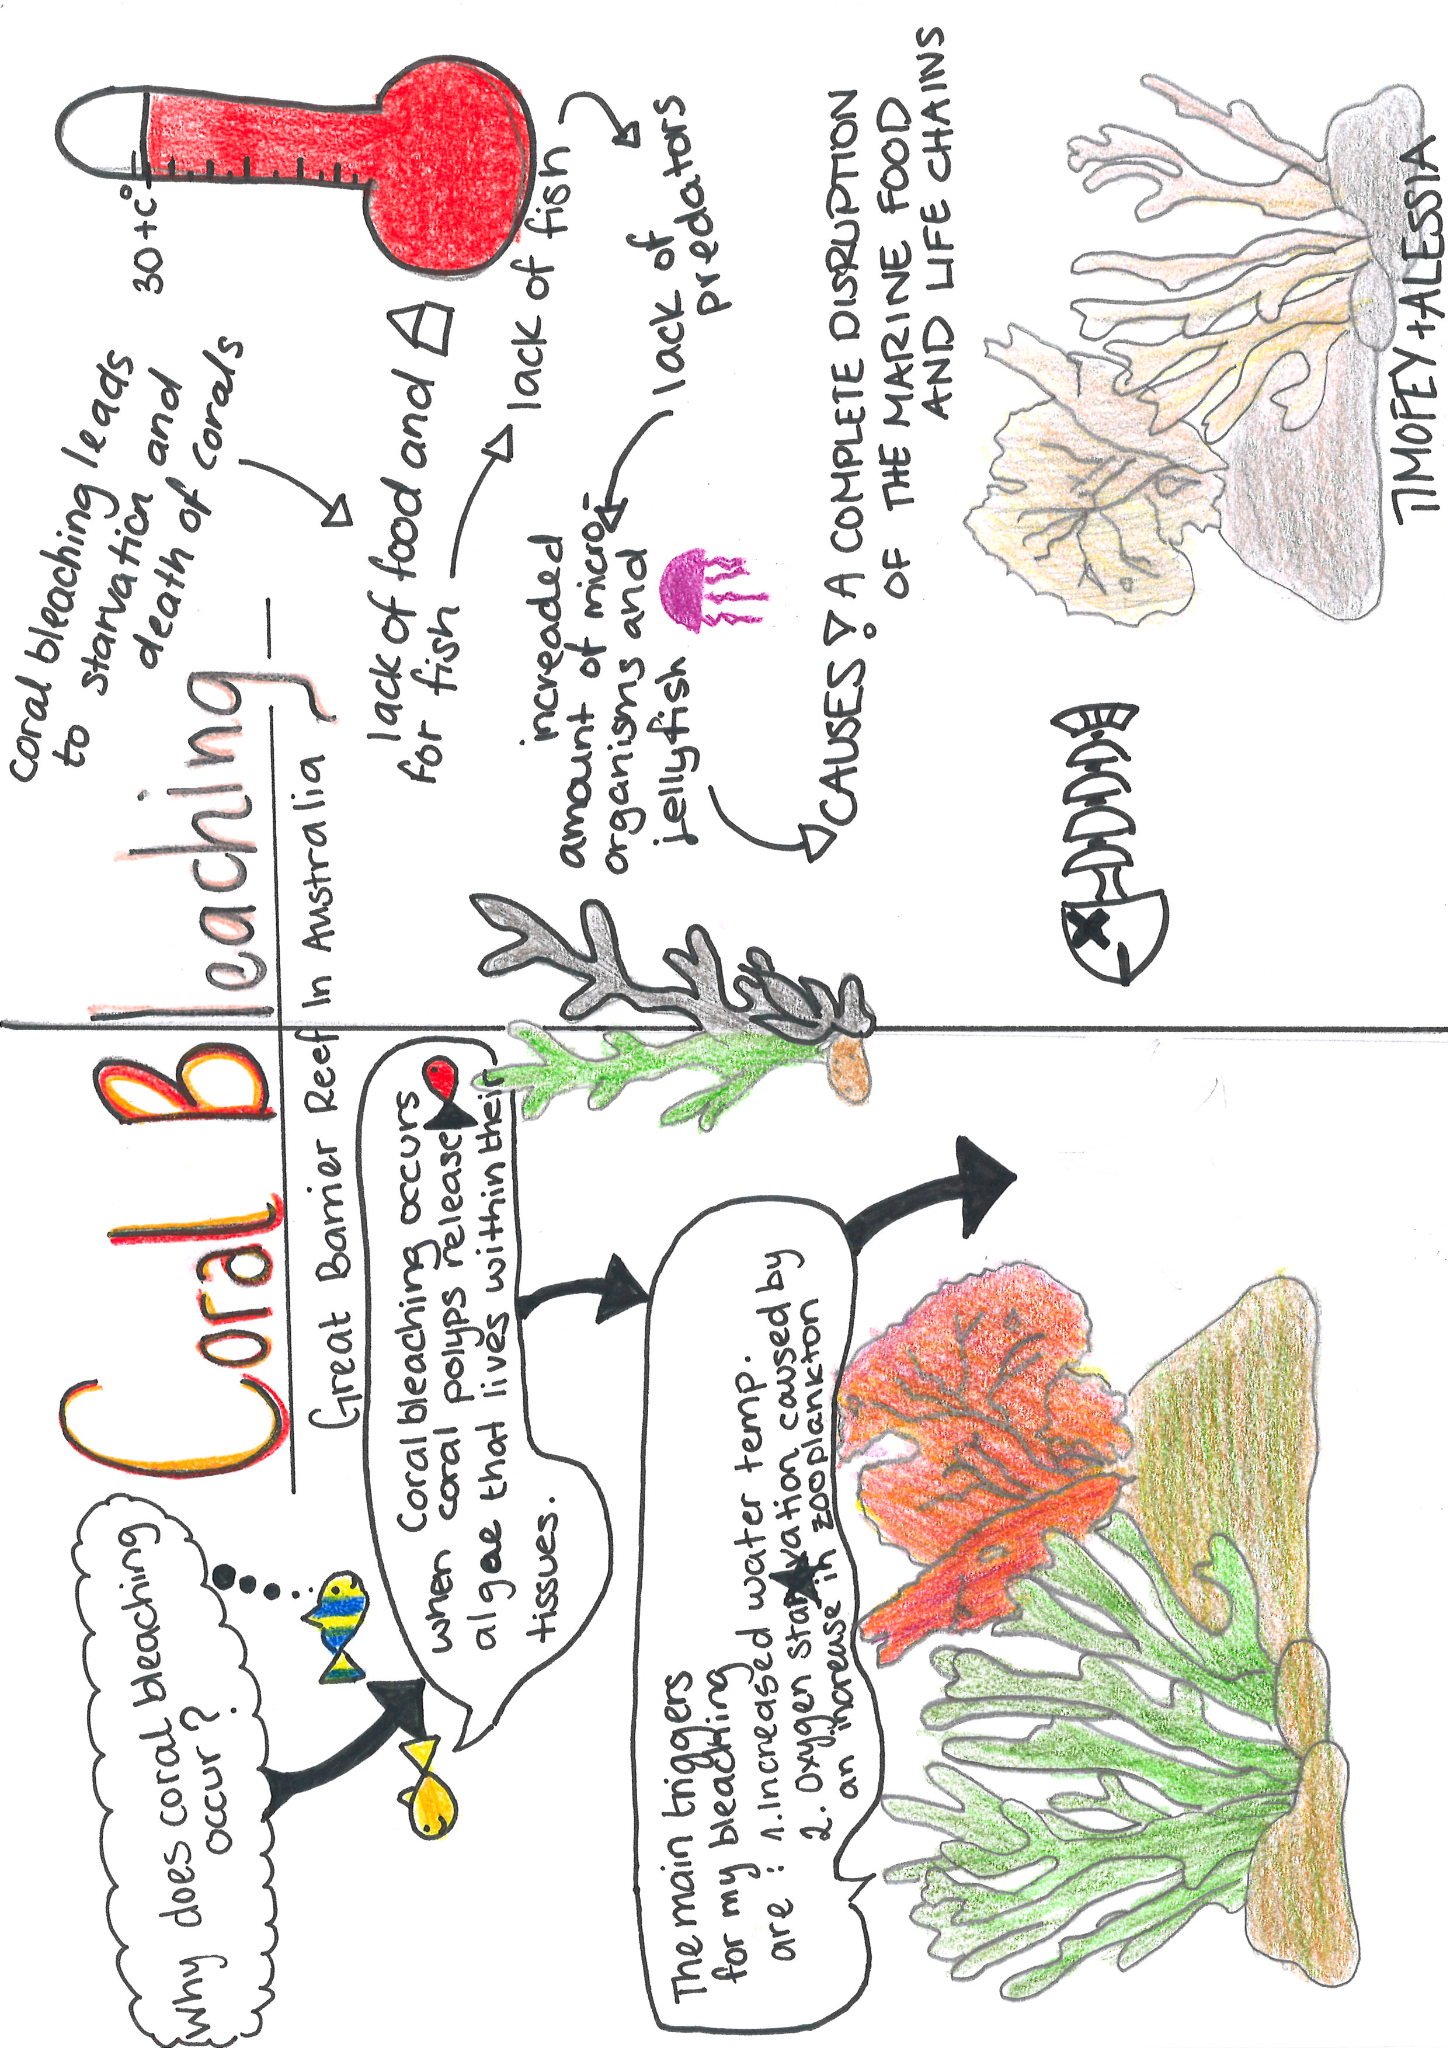 Coral Bleaching
Great Barrier Reef In Australia
Why does coral bleaching
occur?
Coral bleaching occurs
when coral polyps release
algae that lives within their
tissues.
The main triggers
for my bleaching
are : 1. Increased water temp.
2. Oxygen starvation caused by
an increase in zooplankton
coral bleaching leads
to starvation and
death of corals
30+C°
lack of food and
for fish
lack of fish
lack of
predators
increaded
amount of micro-
organisms and
jellyfish
CAUSES! A COMPLETE DISRUPTION
OF THE MARINE FOOD
AND LIFE CHAINS
TIMOFEY + ALESSIA